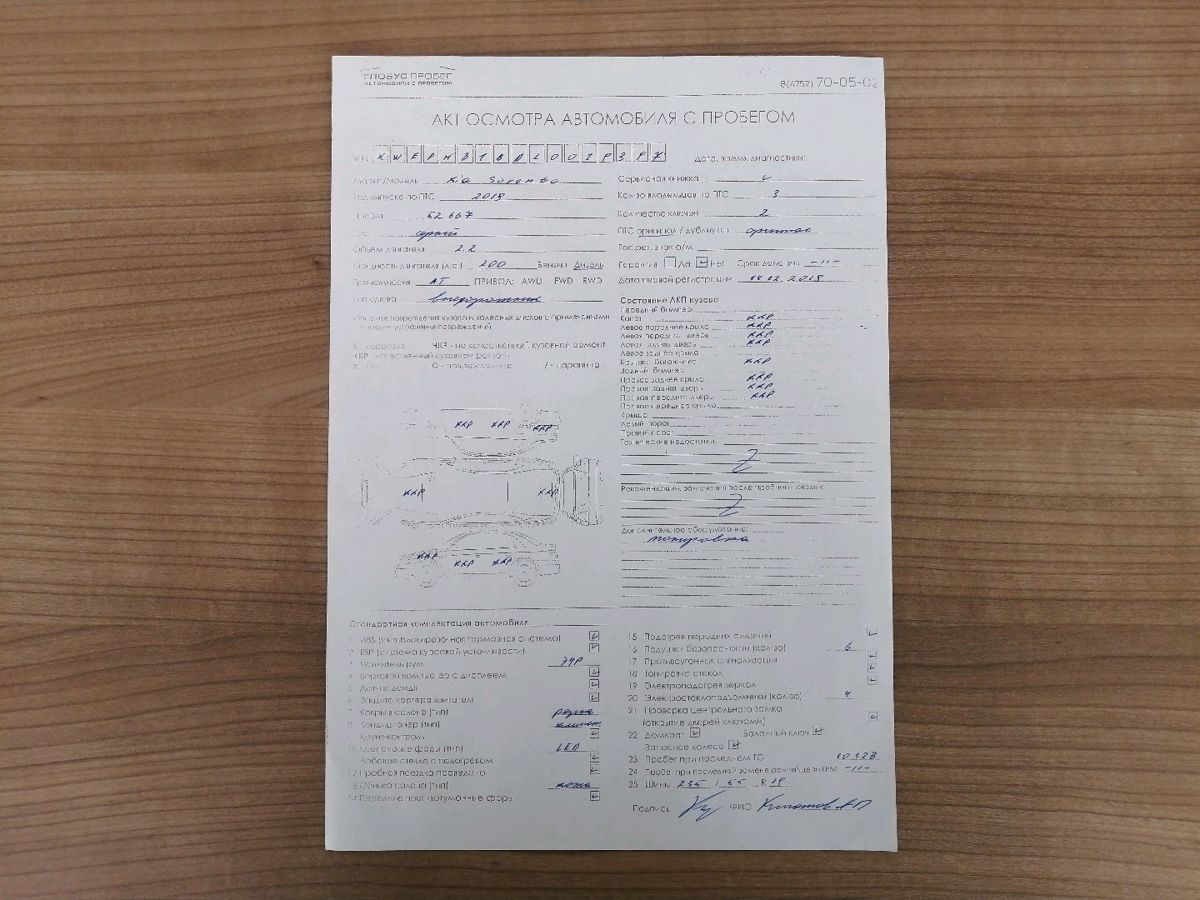 ГЛОБУС ПРОБЕГ
АВТОМОБИЛИ С ПРОБЕГОМ
8(4752) 70-05-02
АКТ ОСМОТРА АВТОМОБИЛЯ С ПРОБЕГОМ
Kia Sorento
Год выпуска по ПТС 2019
52 667
серый
Объем двигателя 2.2
Мощность двигателя (л.с.) 200 Бензин Дизель
Трансмиссия АТ ПРИВОД: AWD FWD RWD
Тип кузова внедорожник
ЧКР - не качественный кузовной ремонт
ККР - качественный кузовной ремонт
/ - царапина
ККР ККР ККР
ККР ККР
ККР ККР ККР
Дата, время, диагностики:
Сервисная книжка
Кол-во владельцев по ПТС 3
Количество ключей 2
ПТС оригинал / дубликат оригинал
Гос. рег. знак а/м
Гарантия Да Нет Срок действия -11-
Дата первой регистрации 14.12.2019
Состояние ЛКП кузова
Передний бампер
Капот ККР
Левое переднее крыло ККР
Левая передняя дверь ККР
Левая задняя дверь ККР
Левое заднее крыло
Крышка багажника ККР
Задний бампер
Правое заднее крыло ККР
Правая задняя дверь ККР
Правая передняя дверь ККР
Правое переднее крыло
Крыша
Левый порог
Правый порог
Технические недостатки:
Z
Рекомендации, замечания после пробной поездки:
Z
Дополнительное оборудование:
тонировка
Стандартная комплектация автомобиля
1 ABS (антиблокировочная тормозная система)
2 ESP (система курсовой устойчивости)
3 Усилитель руля ЭУР
4 Бортовой компьютер с дисплеем
5 Датчик дождя
6 Защита картера двигателя
7 Ковры в салоне (тип) резина
8 Кондиционер (тип) климат
9 Круиз-контроль
10 Ксеноновые фары (тип) LED
11 Лобовое стекло с подогревом
12 Пробная поездка проведена
13 Обивка салона (тип) кожа
14 Передние противотуманные фары
15 Подогрев передних сидений
16 Подушки безопасности (кол-во) 6
17 Противоугонная сигнализация
18 Тонировка стекол
19 Электроподогрев зеркал
20 Электростеклоподъемники (кол-во) 4
21 Проверка центрального замка
(открытие дверей ключами)
22 Домкрат Балонный ключ
Запасное колесо
23 Пробег при последнем ТО
24 Пробег при последней замене ремня/цепи ГРМ -11-
25 Шины 235 / 55 R 19
Подпись ФИО